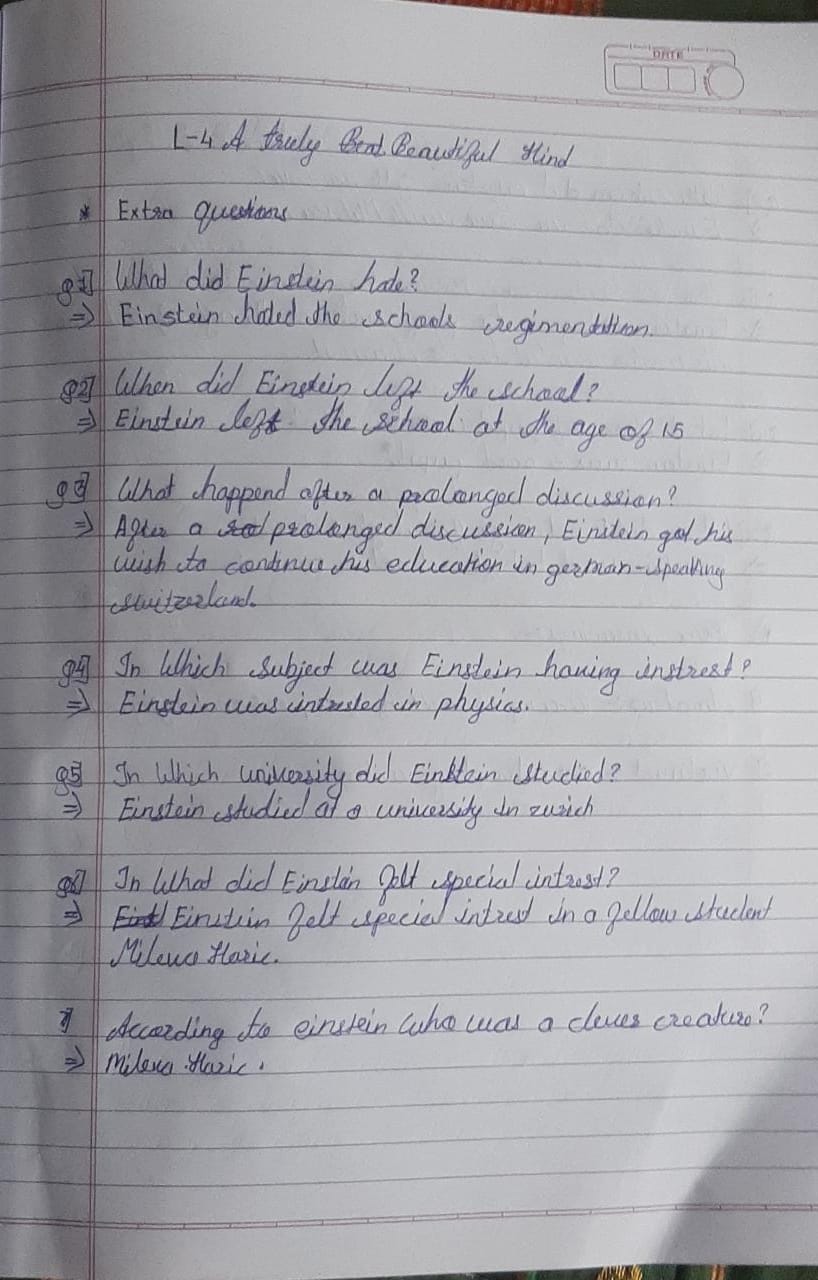 DATE
L-4 A truly Beat Beautiful Mind
* Extra Questions
Q1] What did Einstein hate?
⇒ Einstein hated the schools regimendation.
Q2] When did Einstein left the school?
⇒ Einstein left the school at the age of 15
Q3] What happend after a prolonged discussion?
⇒ After a prolonged discussion, Einstein got his
wish to continue his education in german-speaking
switzerland.
Q4] In Which subject was Einstein having instrest?
⇒ Einstein was intrested in physics.
Q5] In Which university did Einstein studied?
⇒ Einstein studied at a university in zurich
Q6] In What did Einstein felt special intrest?
⇒ Einstein felt special intrest in a fellow student
Mileva Maric.
7] According to einstein who was a clever creature?
⇒ Mileva Maric.